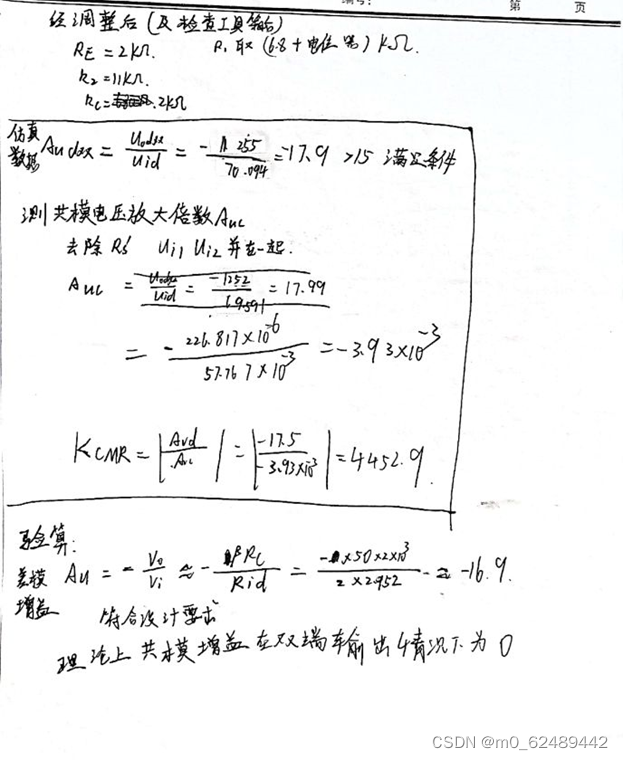 编号: 第 页
经调整后(及检查工具箱后)
RE = 2kΩ. R1 取 (6.8 + 电位器) kΩ.
R2 = 11kΩ.
Rc = 2kΩ
仿真数据 Aud双 = uod双/uid = - 1255/70.094 = -17.9 >15 满足条件
测共模电压放大倍数 Auc
去除 Rs' Ui1 Ui2 并在一起.
Auc = uod双/uid = -1252/69591 = 17.99
= - 226.817×10^-6 / 57.767×10^-3 = -3.93×10^-3
KCMR = |Avd/Avc| = |-17.5/-3.93×10^-3| = 4452.9.
验算:
差模增益 Au = - Vo/Vi ≈ - βRc/Rid = -50×2×10^3 / 2×2.952 ≈ -16.9.
符合设计要求
理论上 共模增益 在双端输出情况下为 0
CSDN @m0_62489442